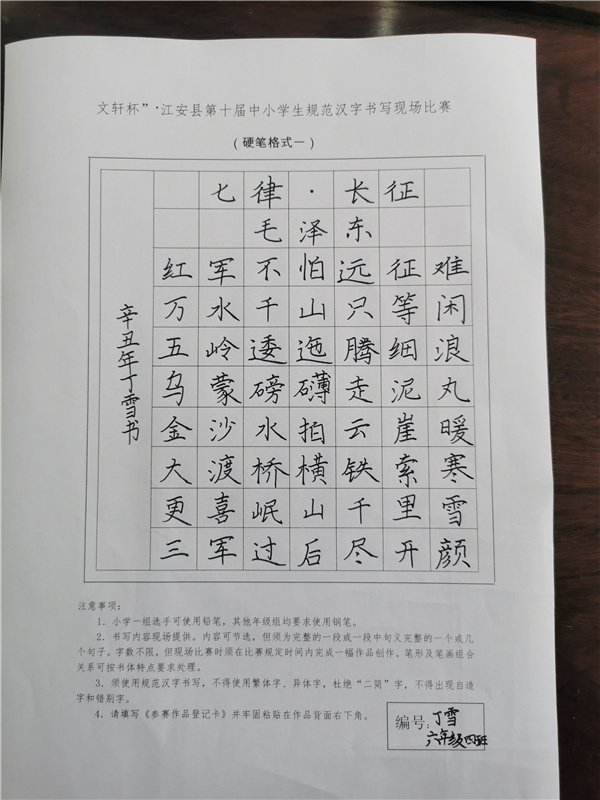 文轩杯”·江安县第十届中小学生规范汉字书写现场比赛
（硬笔格式一）
七律·长征
毛泽东
红军不怕远征难
万水千山只等闲
五岭逶迤腾细浪
乌蒙磅礴走泥丸
金沙水拍云崖暖
大渡桥横铁索寒
更喜岷山千里雪
三军过后尽开颜
辛丑年丁雪书
注意事项：
1．小学一组选手可使用铅笔，其他年级组均要求使用钢笔。
2．书写内容现场提供。内容可节选，但须为完整的一段或一段中句义完整的一个或几
个句子。字数不限，但现场比赛时须在比赛规定时间内完成一幅作品创作。笔形及笔画组合
关系可按书体特点要求处理。
3．须使用规范汉字书写，不得使用繁体字、异体字，杜绝“二简”字，不得出现自造
字和错别字。
4．请填写《参赛作品登记卡》并牢固粘贴在作品背面右下角。
编号：丁雪
六年级四班